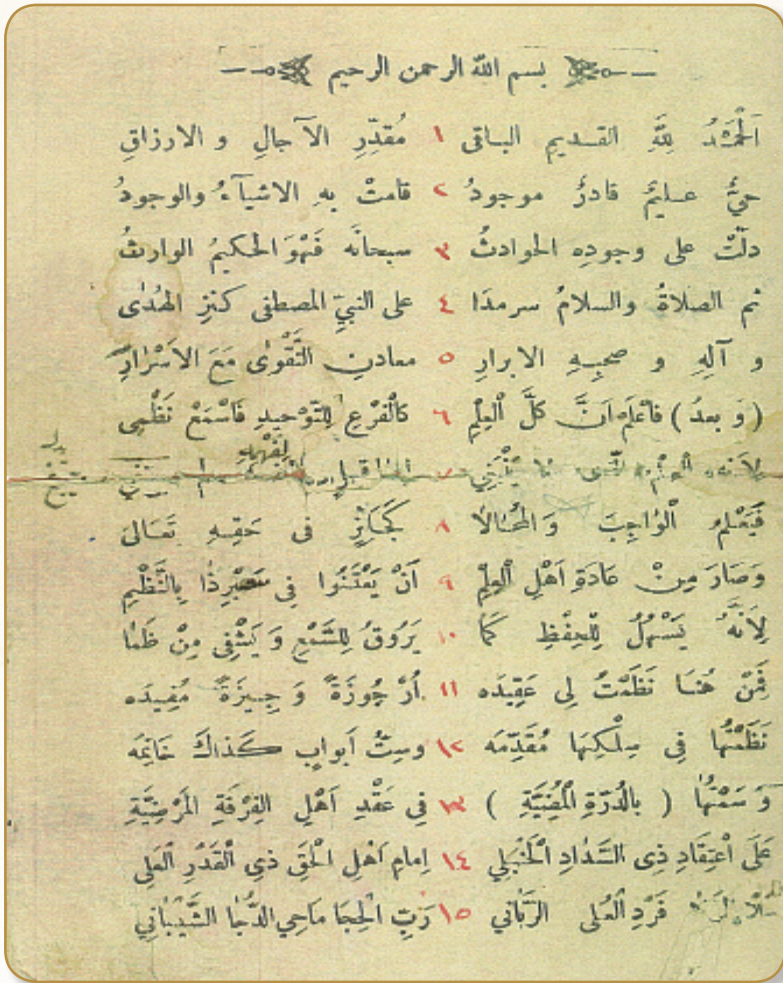 بسم الله الرحمن الرحيم
اَلْحَمْدُ لِلّٰهِ القـديمِ البـاقى ١ مُقدِّرِ الآجالِ و الارزاقِ
حيٌّ عـليمٌ قادرٌ موجودُ ٢ قامتْ بهِ الاشيآءُ والوجودُ
دلّتْ على وجودِه الحوادثُ ٣ سبحانَه فَهْوَ الحكيمُ الوارثُ
ثم الصلاةُ والسلامُ سرمدَا ٤ على النبيِّ المصطفى كنزِ الهُدٰى
و آلِهِ و صحبِـهِ الابرارِ ٥ معادنِ التَّقْوٰى مَعَ الاَسْرٰارِ
(وَ بعدُ) فاعْلَم اَنَّ كلَّ الْعِلْمِ ٦ كالْفَرْعِ لِلتَّوْحيدِ فَاسْمَعْ نَظْمِى
لِاَنَّه الْعِلْمُ الَّذى لا يَنْبَغِي ٧ لِفَهْمِهِ
فَيَعْلمُ الْوٰاجِبَ وَالمُحٰالاٰ ٨ كَجَـائِزٍ فى حَقِـهِ تَعَـالىٰ
وَصَارَ مِنْ عَادَةِ اَهْلِ الْعِلْمِ ٩ اَنْ يَعْتَنُوا فِى سَبْرِ ذٰا بِالنَّظْمِ
لِاَنَّهُ يَسْهُلُ لِلْحِفْظِ كَمٰا ١٠ يَرُوقُ لِلسَّمْعِ وَ يَشْفِى مِنْ ظَمٰا
فَمِنْ هُنَـا نَظَمْتُ لى عَقِيدَه ١١ اُرْجُوزَةً وَجِـيزَةً مُفِيدَه
نَظَمْتُهَا فِى سِلْكِهَا مُقَدِّمَه ١٢ وسِتُّ اَبوابٍ كَـذاكَ خَاتِمَه
وَسَمْتُهٰا ( بالدُّرَةِ الْمُضِيَّةِ ) ١٣ فِي عَقْدِ اَهْلِ الفِرْقَةِ المَرْضِيَّةِ
عَلَى اعْتِقَادِ ذِى السَّدَادِ الحَنْبَلِي ١٤ اِمامِ اَهْلِ الْحَقِّ ذي الْقَدْرِ الْعَلِى
فَرْدِ الْعُلى الرَّبّاني ١٥ رَبِّ الحِجَا مَاحِي الدُّجَا الشَّيْبَانِي